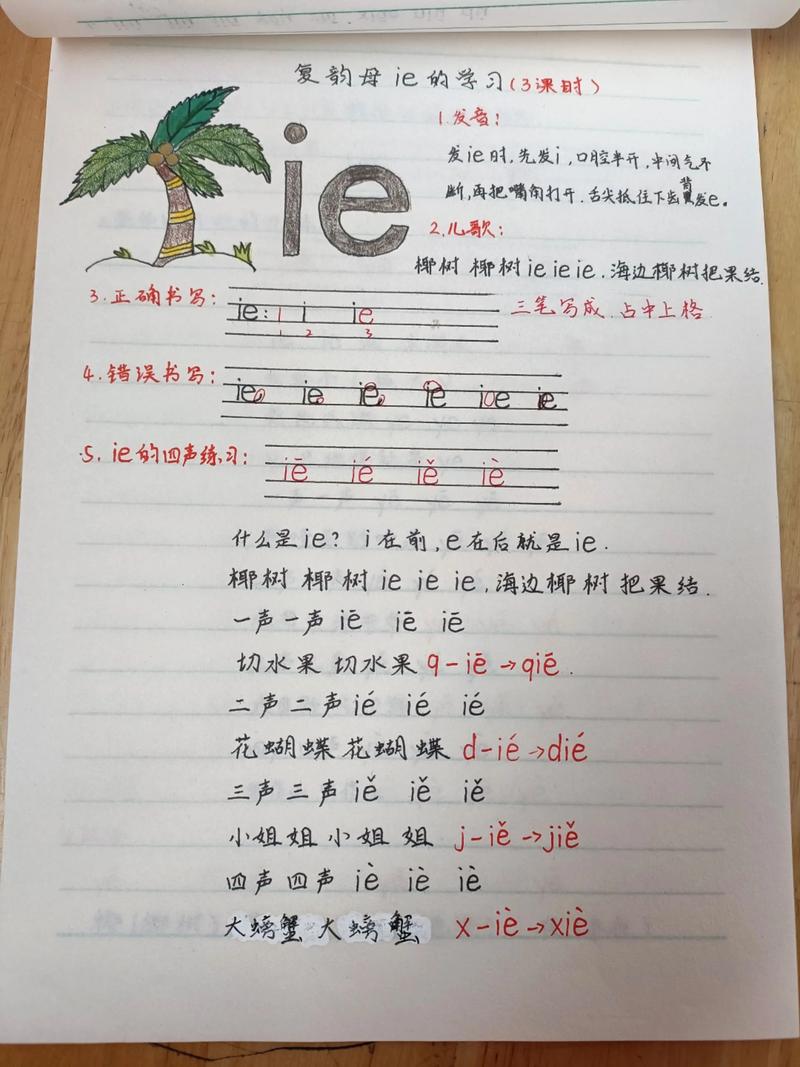 复韵母ie的学习(3课时)
ie
1.发音:
发ie时,先发i,口腔半开,中间气不
断,再把嘴角打开.舌尖抵住下齿背发e。
2.儿歌:
椰树 椰树 ie ie ie.海边椰树把果结.
3.正确书写: ie: l i ie 三笔写成.占中上格
1 2 3
4.错误书写: ie ie ie ie ie ie
5.ie的四声练习: iē ié iě iè
什么是ie? i在前,e在后就是ie.
椰树 椰树 ie ie ie,海边椰树把果结.
一声一声 iē iē iē
切水果 切水果 q-iē→qiē.
二声二声 ié ié ié
花蝴蝶 花蝴蝶 d-ié→dié
三声三声 iě iě iě
小姐姐 小姐姐 j-iě→jiě
四声四声 iè iè iè
大螃蟹 大螃蟹 x-iè→xiè